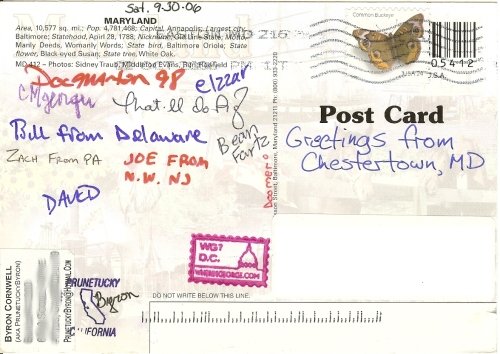 Sat. 9-30-06
MARYLAND
Area, 10,577 sq. mi.; Pop. 4,781,468; Capital, Annapolis; Largest city,
Baltimore; Statehood, April 28, 1788; Nickname, Old Line State; Motto,
Manly Deeds, Womanly Words; State bird, Baltimore Oriole; State
flower, Black-eyed Susan; State tree, White Oak.
MD 412 – Photos: Sidney Traub, Middleton Evans,
Common Buckeye
USA 24
05412
U.S.A.
Docmartin 98
elzzar
CMgeorger
That'll do AZ
Bill from Delaware
Bean
Fartz
Zach From PA
JOE FROM
N.W. NJ
DAVED
Doomer
Baltimore, Maryland 21211 Ph: (800) 933-2230
Post Card
Greetings from
Chestertown, MD
WG?
D.C.
WHERESGEORGE.COM
DO NOT WRITE BELOW THIS LINE.
BYRON CORNWELL
(AKA PRUNETUCKYBYRON)
PRUNETUCKY
Byron
CALIFORNIA